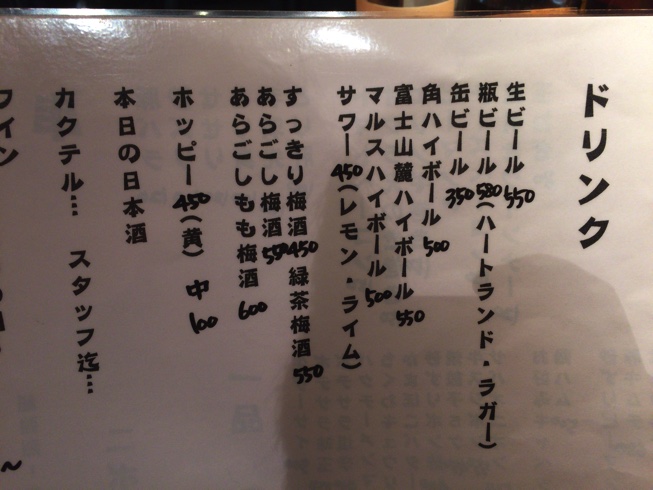 ドリンク
生ビール 550
瓶ビール 580(ハートランド・ラガー)
缶ビール 350
角ハイボール 500
富士山麓ハイボール 550
マルスハイボール 500
サワー 450(レモン・ライム)
すっきり梅酒 450 緑茶梅酒 550
あらごし梅酒 550
あらごしもも梅酒 600
ホッピー 450(黄) 中 100
本日の日本酒
カクテル… スタッフ迄…
ワイン